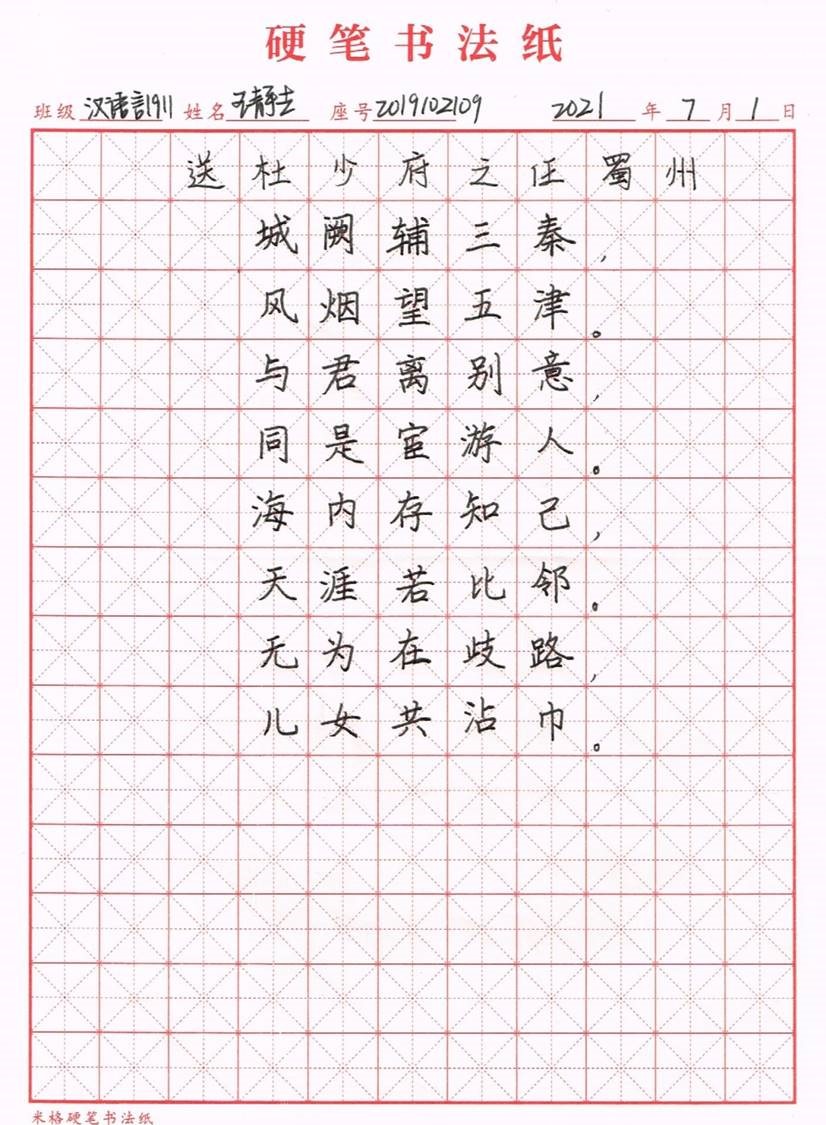 硬笔书法纸
班级 汉语言1911 姓名 王静
座号 2019102109 2021 年 7 月 1 日
送杜少府之任蜀州
城阙辅三秦,
风烟望五津。
与君离别意,
同是宦游人。
海内存知己,
天涯若比邻。
无为在歧路,
儿女共沾巾。
米格硬笔书法纸